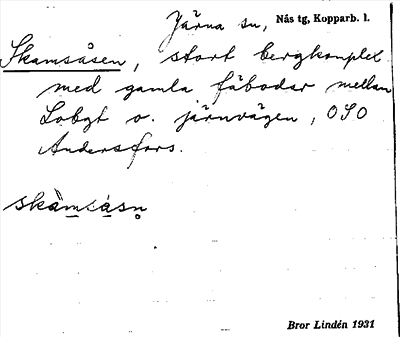 Järna sn, Nås tg, Kopparb. l.
Skamsåsen, stort bergkomplex
med gamla fäbodar mellan
Lobgt o. järnvägen, OSO
Andersfors.
skàmsásn̥
Bror Lindén 1931